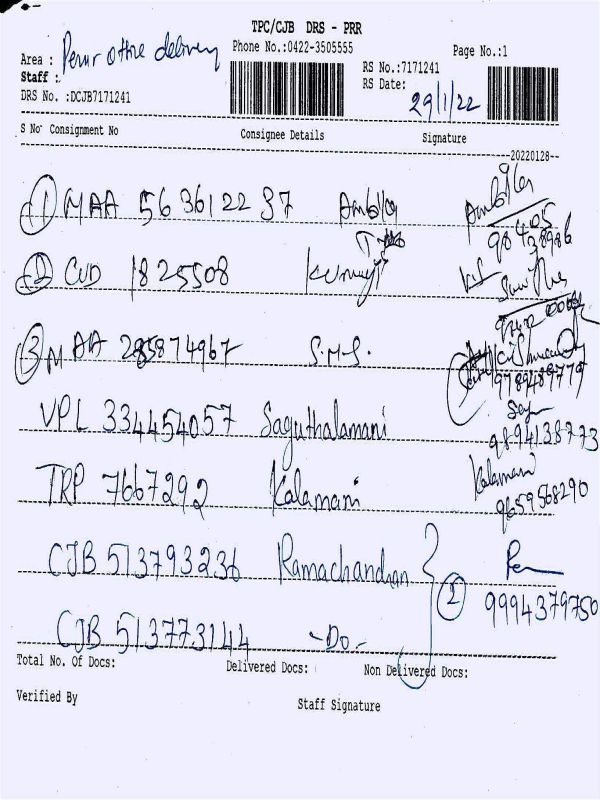 TPC/CJB DRS - PRR
Phone No.:0422-3505555
Page No.:1
Area : Perur office delivery
Staff :
DRS No. :DCJB7171241
RS No.:7171241
RS Date: 29/1/22
S No Consignment No Consignee Details Signature
--20220128--
1 MAA 563612237 Ambika
98405 38986
2 CUD 1825508
3 MAA 285874967 S.M.S.
9789489779
VPL 334454057 Saguthalamani
9894138773
TRP 7667292 Kalamani Kalamani
9659568290
CJB 513793236 Ramachandran
2 9994379750
CJB 513773144 -Do-
Total No. Of Docs: Delivered Docs: Non Delivered Docs:
Verified By Staff Signature